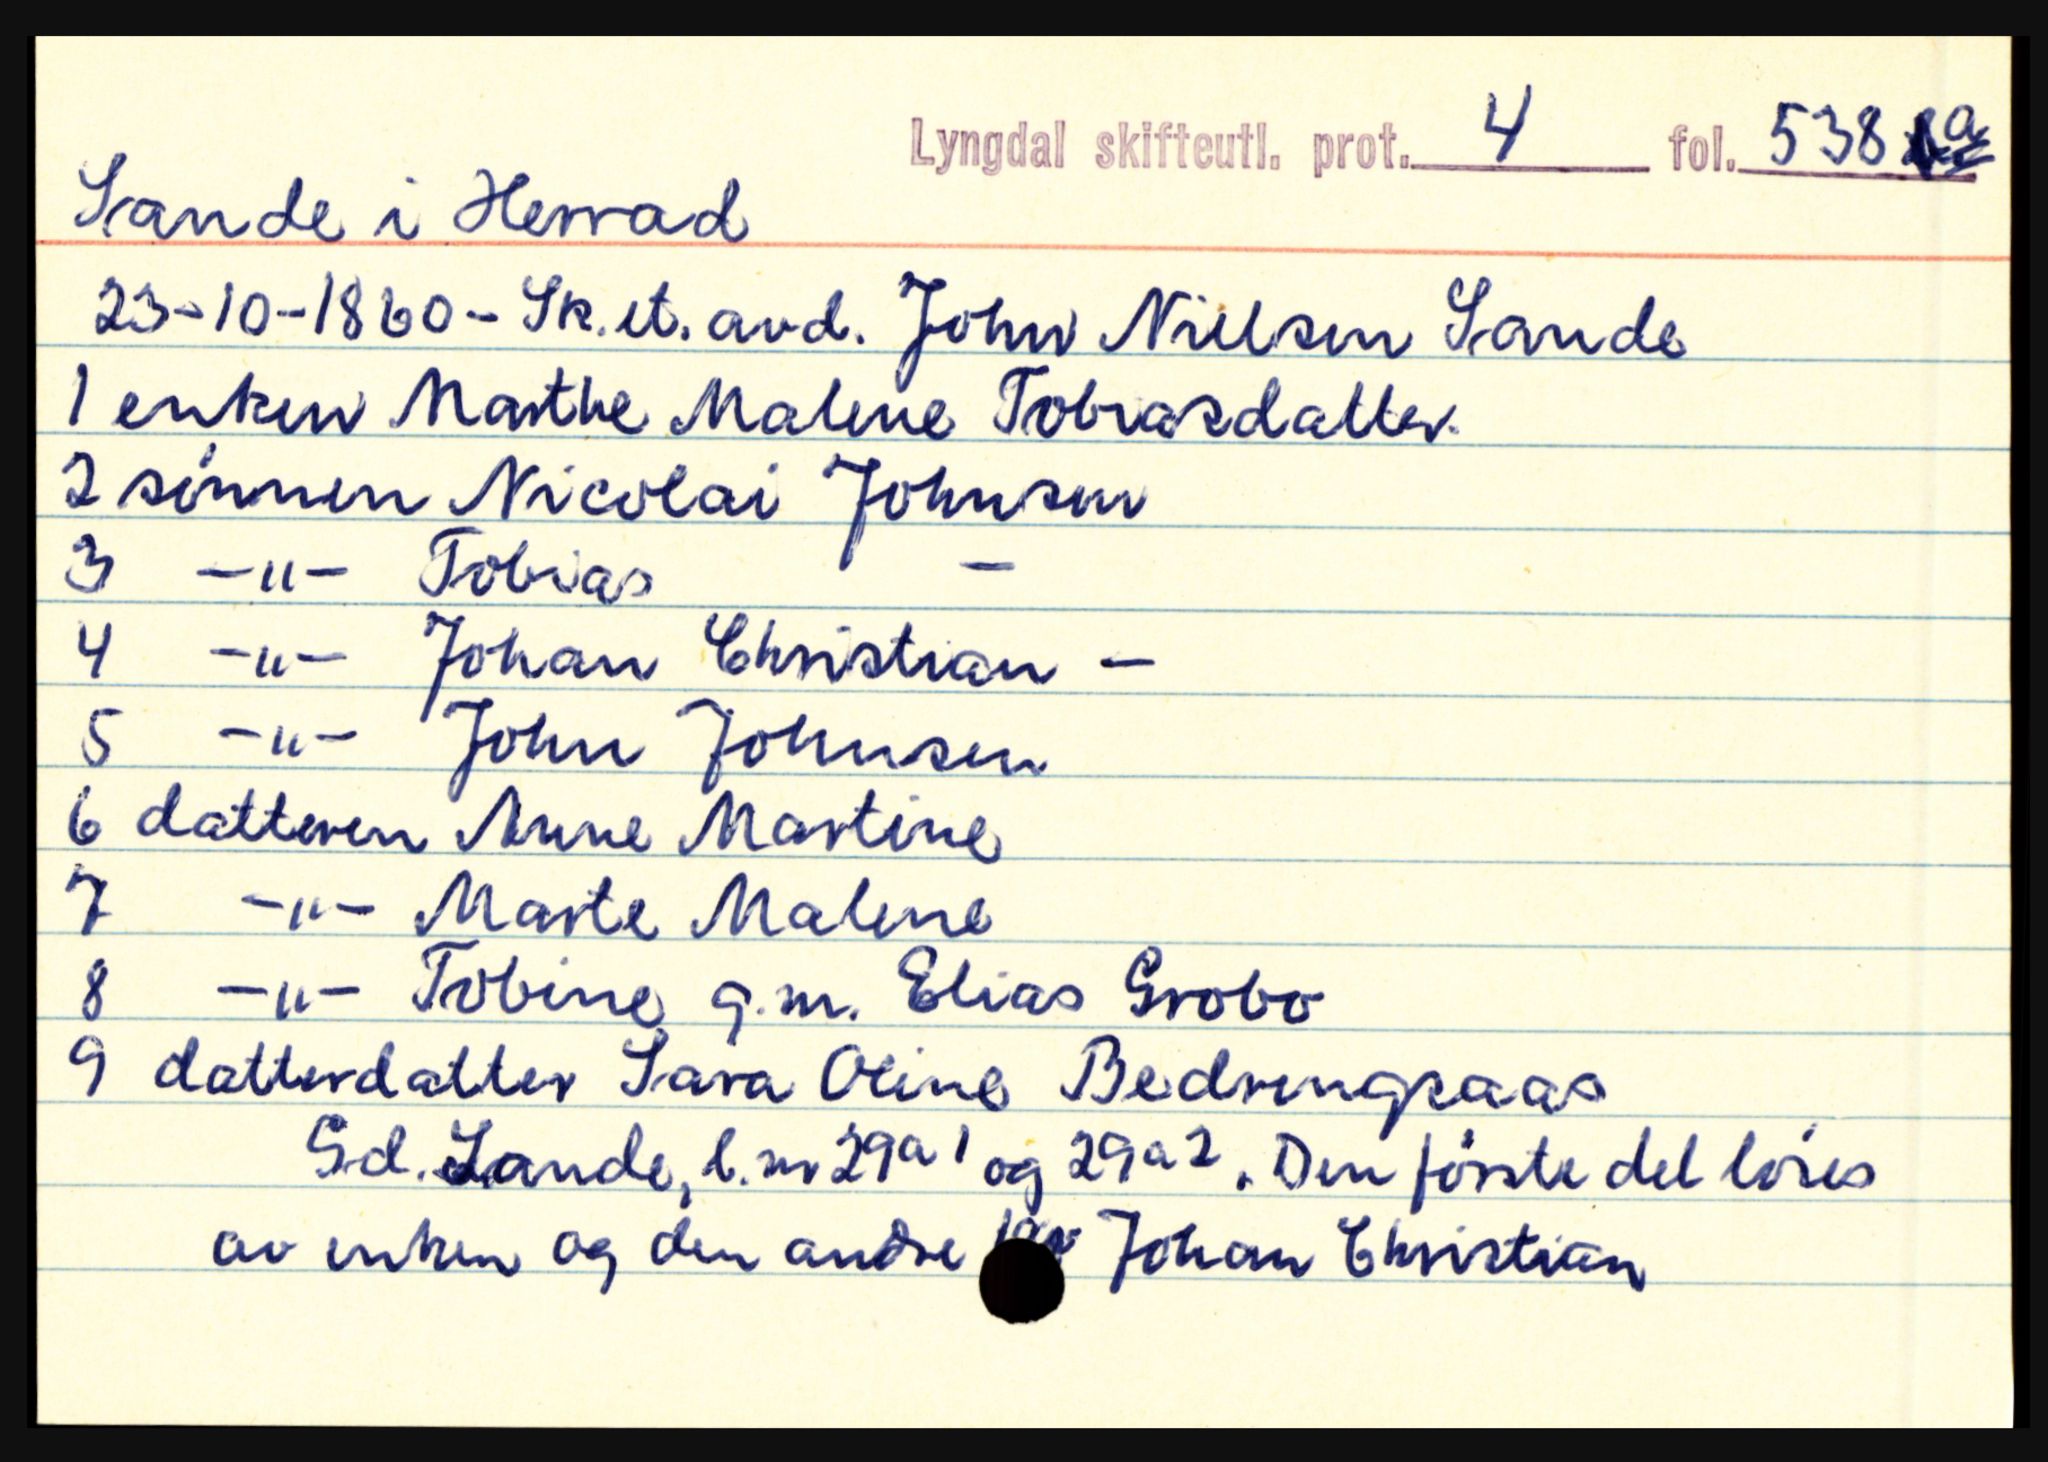 Lyngdal skifteutl. prot. 4 fol. 538 a
Sande i Herrad
23-10-1860 - Sk. et. avd. John Nillsen Sande
1 enken Marthe Malene Tobiasdatter.
2 sónnen Nicolai Johnsen
3 -"- Tobias -
4 -"- Johan Christian -
5 -"- John Johnsen
6 datteren Anne Martine
7 -"- Marte Malene
8 -"- Tobine g.m. Elias Grobo
9 datterdatter Sara Oline Bedringsaas
Gd. Sande, l.nr 29a1 og 29a2. Den fórste del lóses
av enken og den andre av Johan Christian